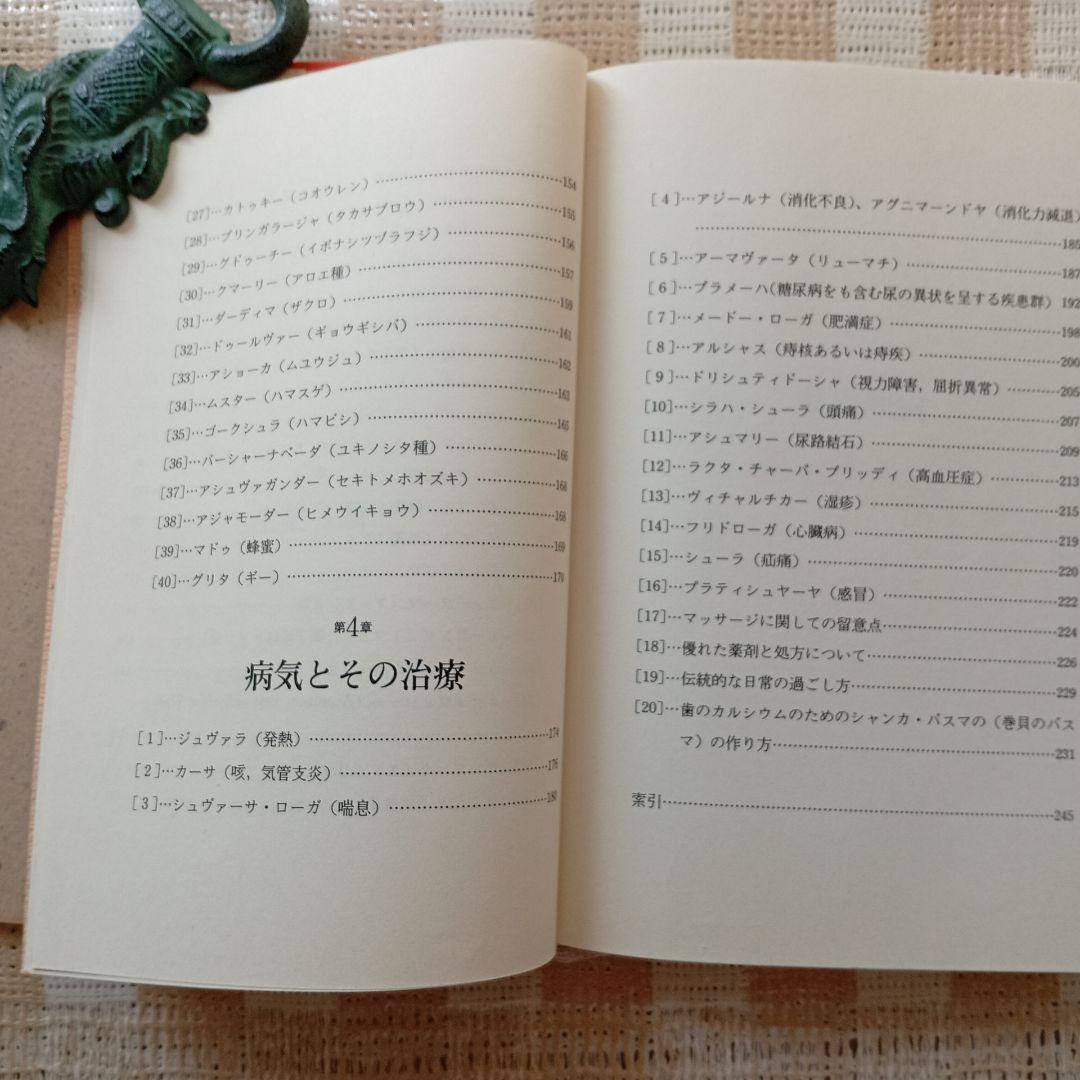 [27]…カトゥキー（コオウレン）…154
[28]…ブリンガラージャ（タカサブロウ）…155
[29]…グドゥーチー（イボナシツヅラフジ）…156
[30]…クマーリー（アロエ種）…157
[31]…ダーディマ（ザクロ）…159
[32]…ドゥールヴァー（ギョウギシバ）…161
[33]…アショーカ（ムユウジュ）…162
[34]…ムスター（ハマスゲ）…163
[35]…ゴークシュラ（ハマビシ）…165
[36]…パーシャーナベーダ（ユキノシタ種）…166
[37]…アシュヴァガンダー（セキトメホオズキ）…168
[38]…アジャモーダー（ヒメウイキョウ）…168
[39]…マドゥ（蜂蜜）…169
[40]…グリタ（ギー）…170
第4章
病気とその治療
[1]…ジュヴァラ（発熱）…174
[2]…カーサ（咳，気管支炎）…176
[3]…シュヴァーサ・ローガ（喘息）…180
[4]…アジールナ（消化不良）、アグニマーンドヤ（消化力減退）
…185
[5]…アーマヴァータ（リューマチ）…187
[6]…プラメーハ（糖尿病をも含む尿の異状を呈する疾患群）192
[7]…メードー・ローガ（肥満症）…198
[8]…アルシャス（痔核あるいは痔疾）…200
[9]…ドリシュティドーシャ（視力障害，屈折異常）…205
[10]…シラハ・シューラ（頭痛）…207
[11]…アシュマリー（尿路結石）…209
[12]…ラクタ・チャーパ・ブリッディ（高血圧症）…213
[13]…ヴィチャルチカー（湿疹）…215
[14]…フリドローガ（心臓病）…219
[15]…シューラ（疝痛）…220
[16]…プラティシュヤーヤ（感冒）…222
[17]…マッサージに関しての留意点…224
[18]…優れた薬剤と処方について…226
[19]…伝統的な日常の過ごし方…229
[20]…歯のカルシウムのためのシャンカ・バスマの（巻貝のバス
マ）の作り方…231
索引…245